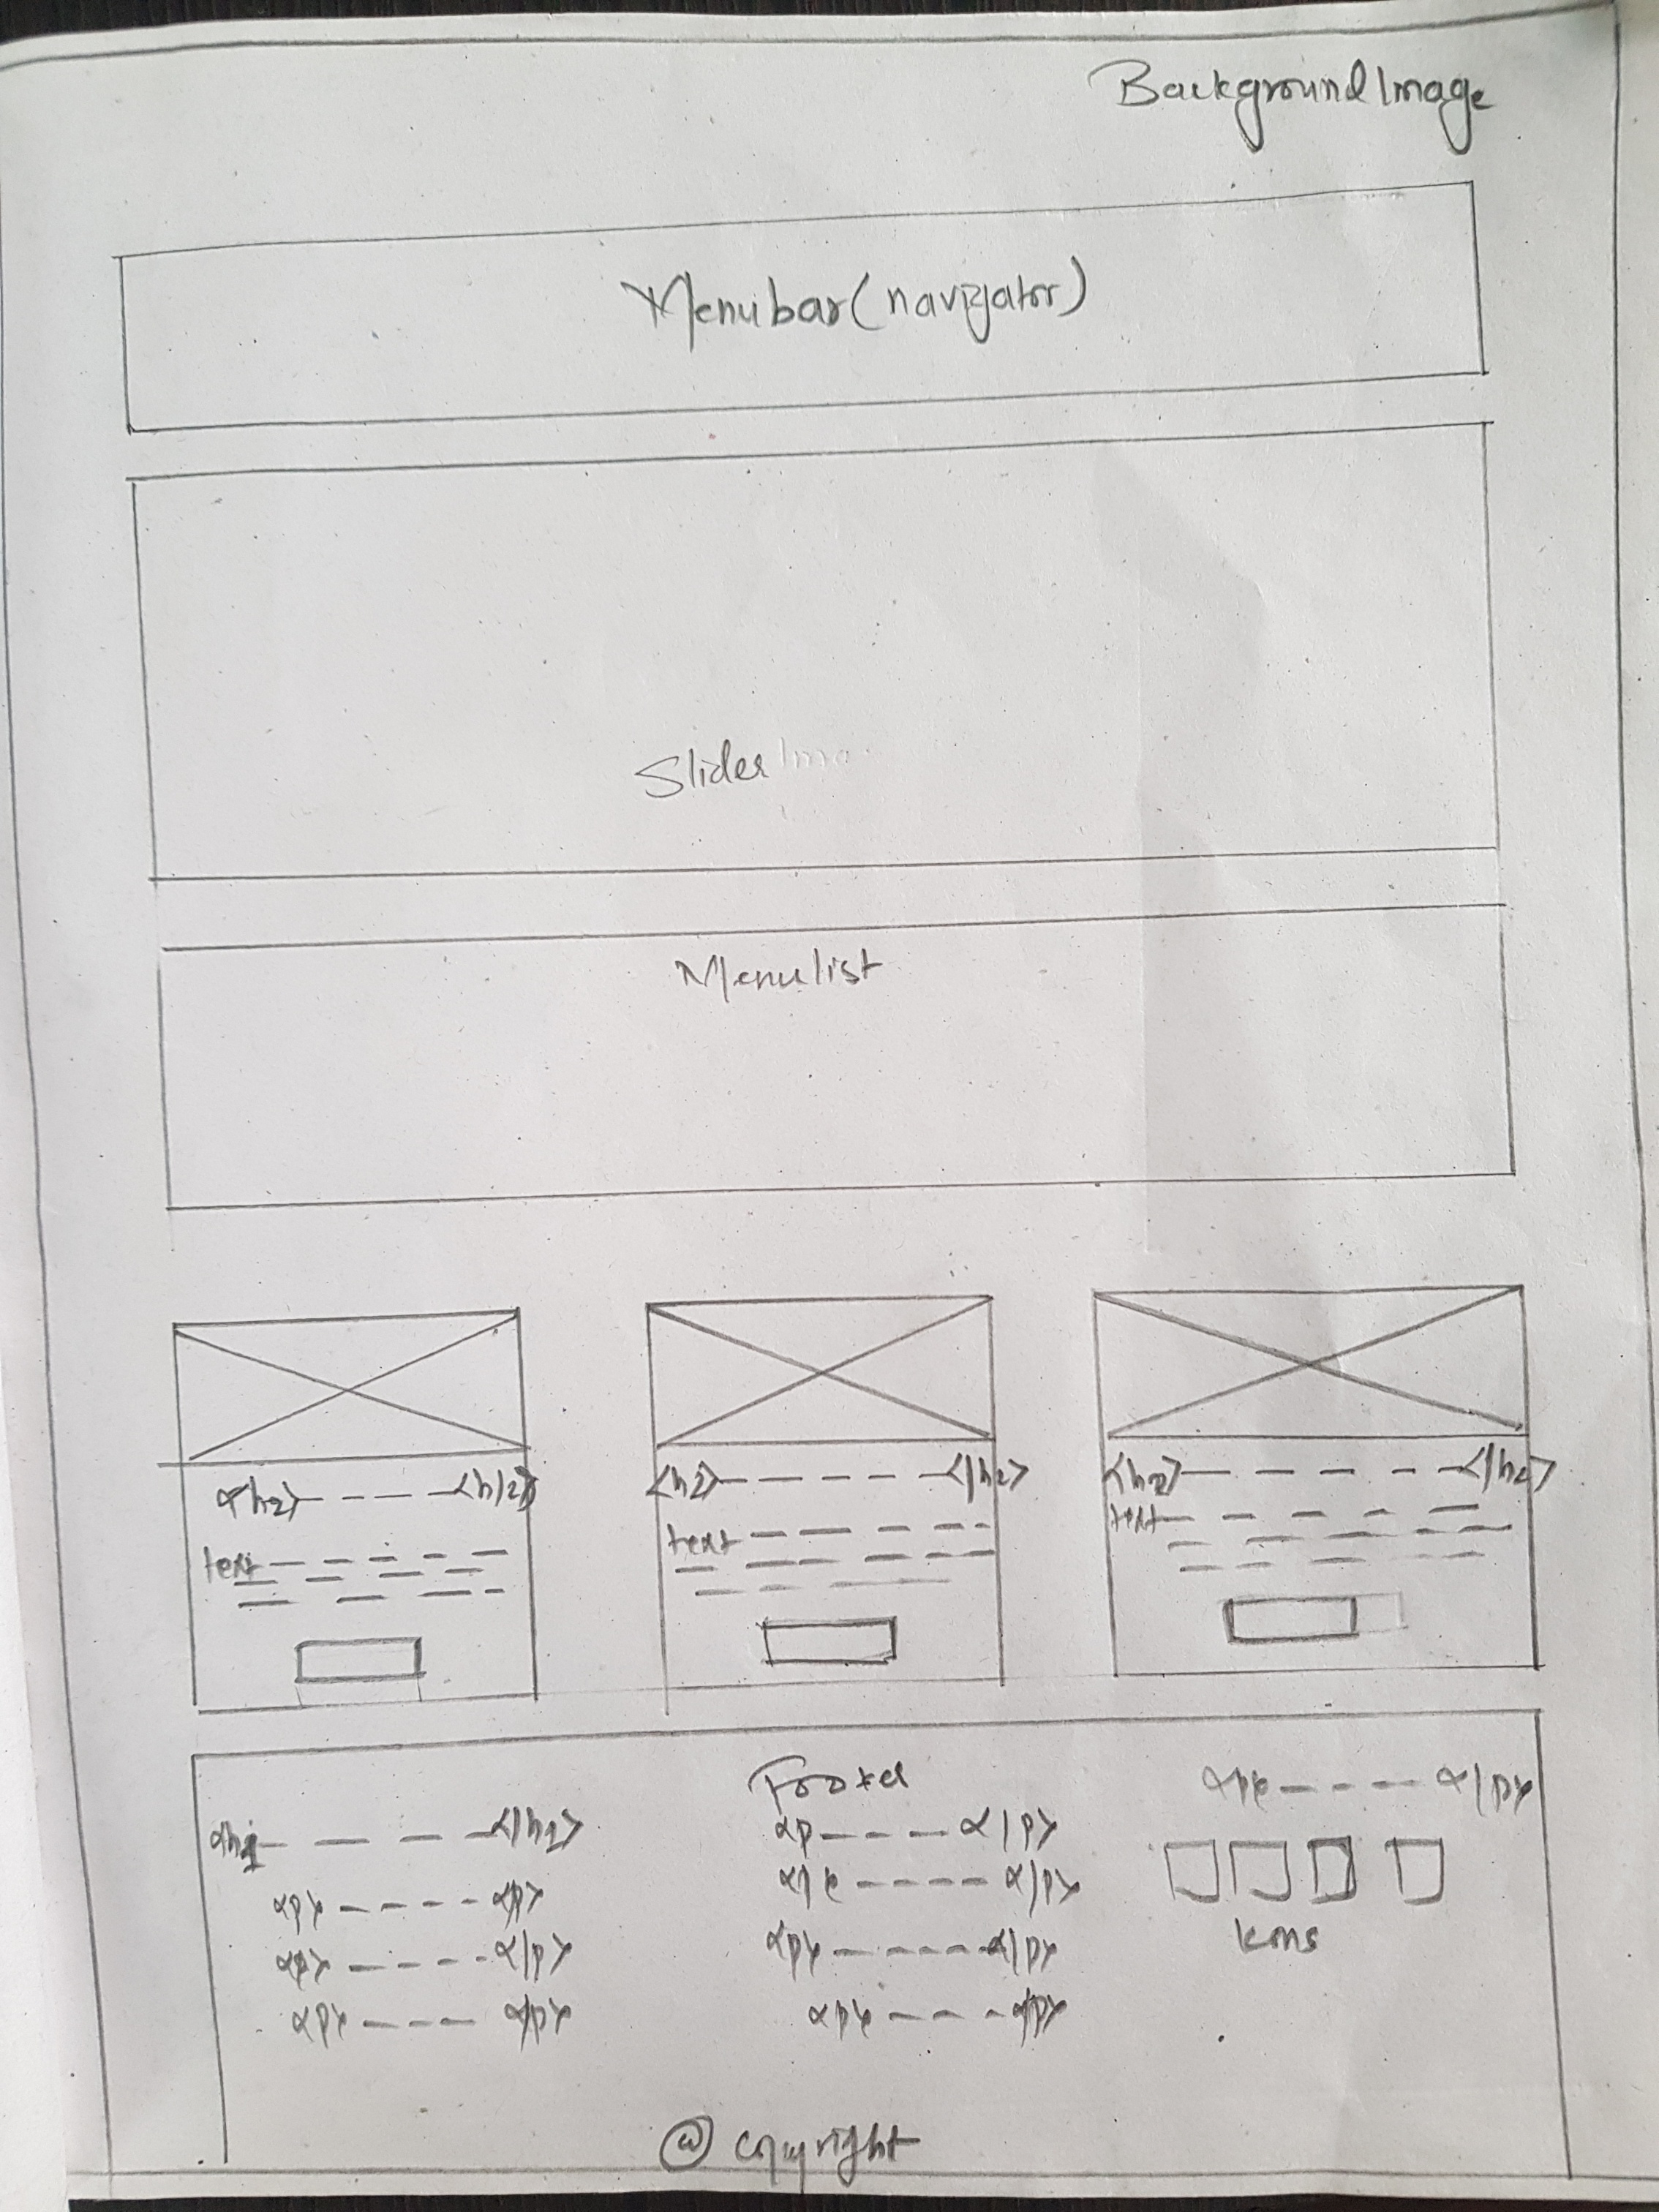 Background Image
Menubar(navigator)
Slider
Menulist
<h2> <h/2>
text
<h2> </h2>
text
<h2> </h2>
text
Footer
<h1 </h1>
<p> <p>
<p> </p>
<p> </p>
<p </p>
<p> </p>
<p> </p>
<p> </p>
<p> </p>
Icons
@ copyright